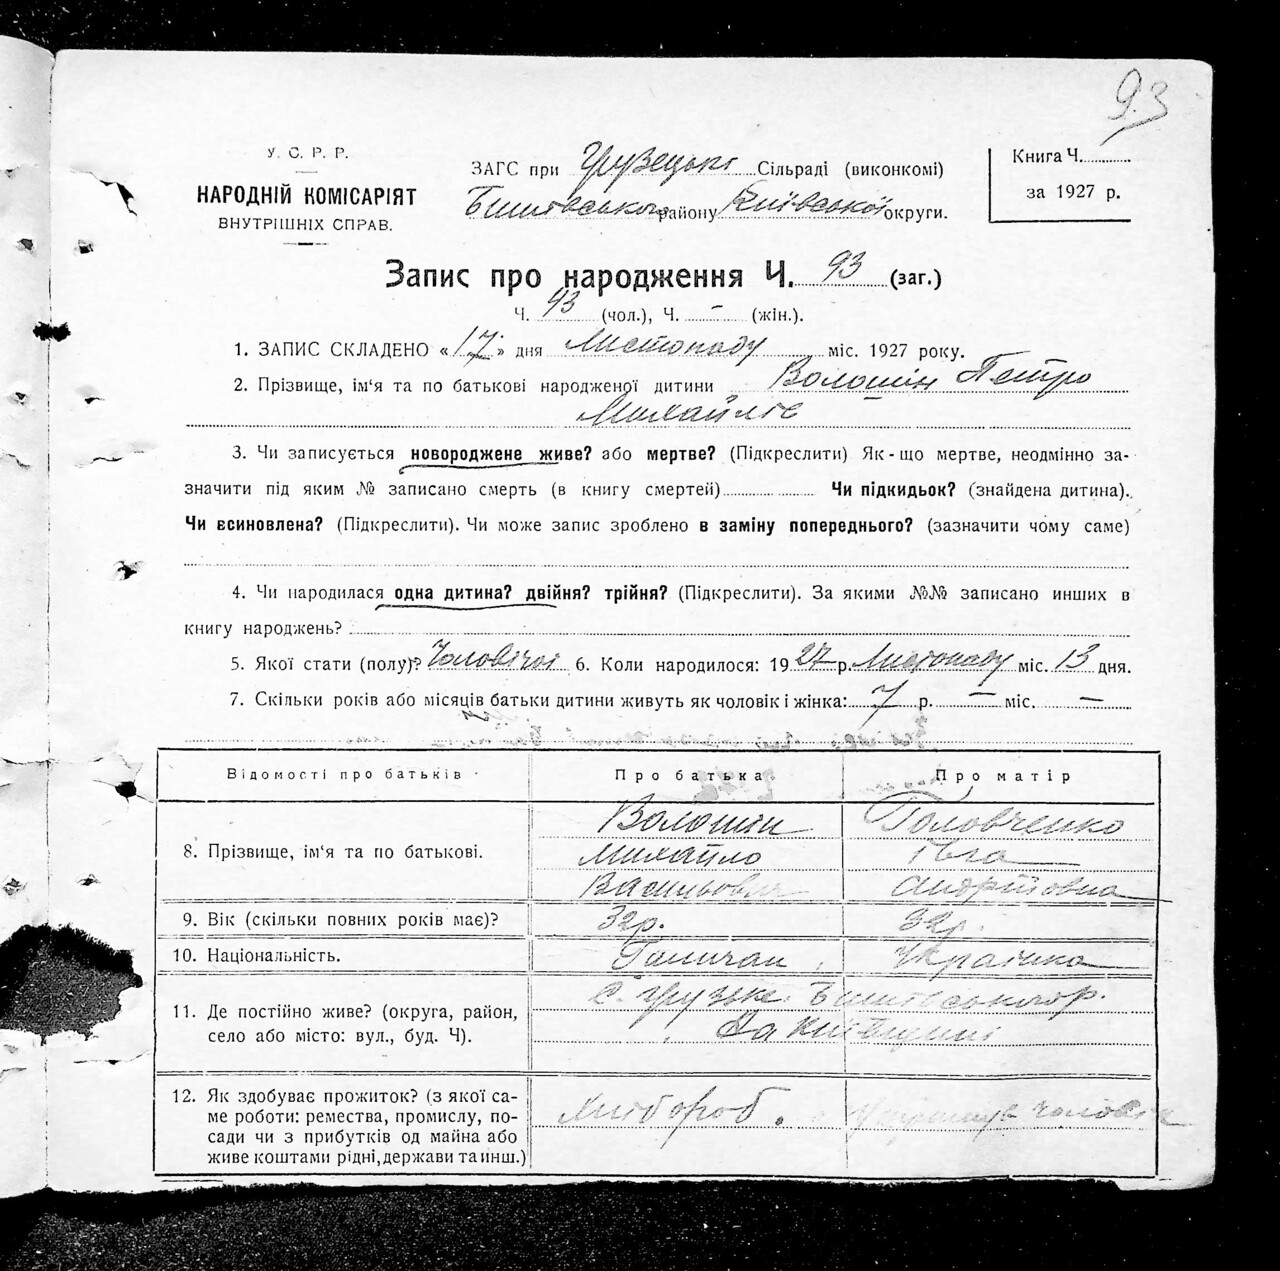 93
У. С. Р. Р.
НАРОДНІЙ КОМІСАРІЯТ
ВНУТРІШНІХ СПРАВ.
ЗАГС при Грузецькі Сільраді (виконкомі)
Бишівського району Київської округи.
Книга Ч.
за 1927 р.
Запис про народження Ч. 93 (заг.)
Ч. 43 (чол.), Ч. – (жін.).
1. ЗАПИС СКЛАДЕНО «17» дня Листопаду міс. 1927 року.
2. Прізвище, ім'я та по батькові народженої дитини Волошін Петро
Михайлів
3. Чи записується новороджене живе? або мертве? (Підкреслити) Як-що мертве, неодмінно за-
значити під яким № записано смерть (в книгу смертей) Чи підкидьок? (знайдена дитина).
Чи всиновлена? (Підкреслити). Чи може запис зроблено в заміну попереднього? (зазначити чому саме)
4. Чи народилася одна дитина? двійня? трійня? (Підкреслити). За якими №№ записано инших в
книгу народжень?
5. Якої стати (полу)? Чоловічої 6. Коли народилося: 1927 р. Листопаду міс. 13 дня.
7. Скільки років або місяців батьки дитини живуть як чоловік і жінка: 7 р. — міс. —
Відомості про батьків
Про батька
Про матір
8. Прізвище, ім'я та по батькові.
Волошін
Михайло
Васильович
Головченко
Андріївна
9. Вік (скільки повних років має)?
32р.
32р.
10. Національність.
Галичан
Українка
11. Де постійно живе? (округа, район,
село або місто: вул., буд. Ч).
с. Грузьке Бишівського р.
На Київщині
12. Як здобуває прожиток? (з якої са-
ме роботи: ремества, промислу, по-
сади чи з прибутків од майна або
живе коштами рідні, держави та инш.)
Хлібороб.
чоловік